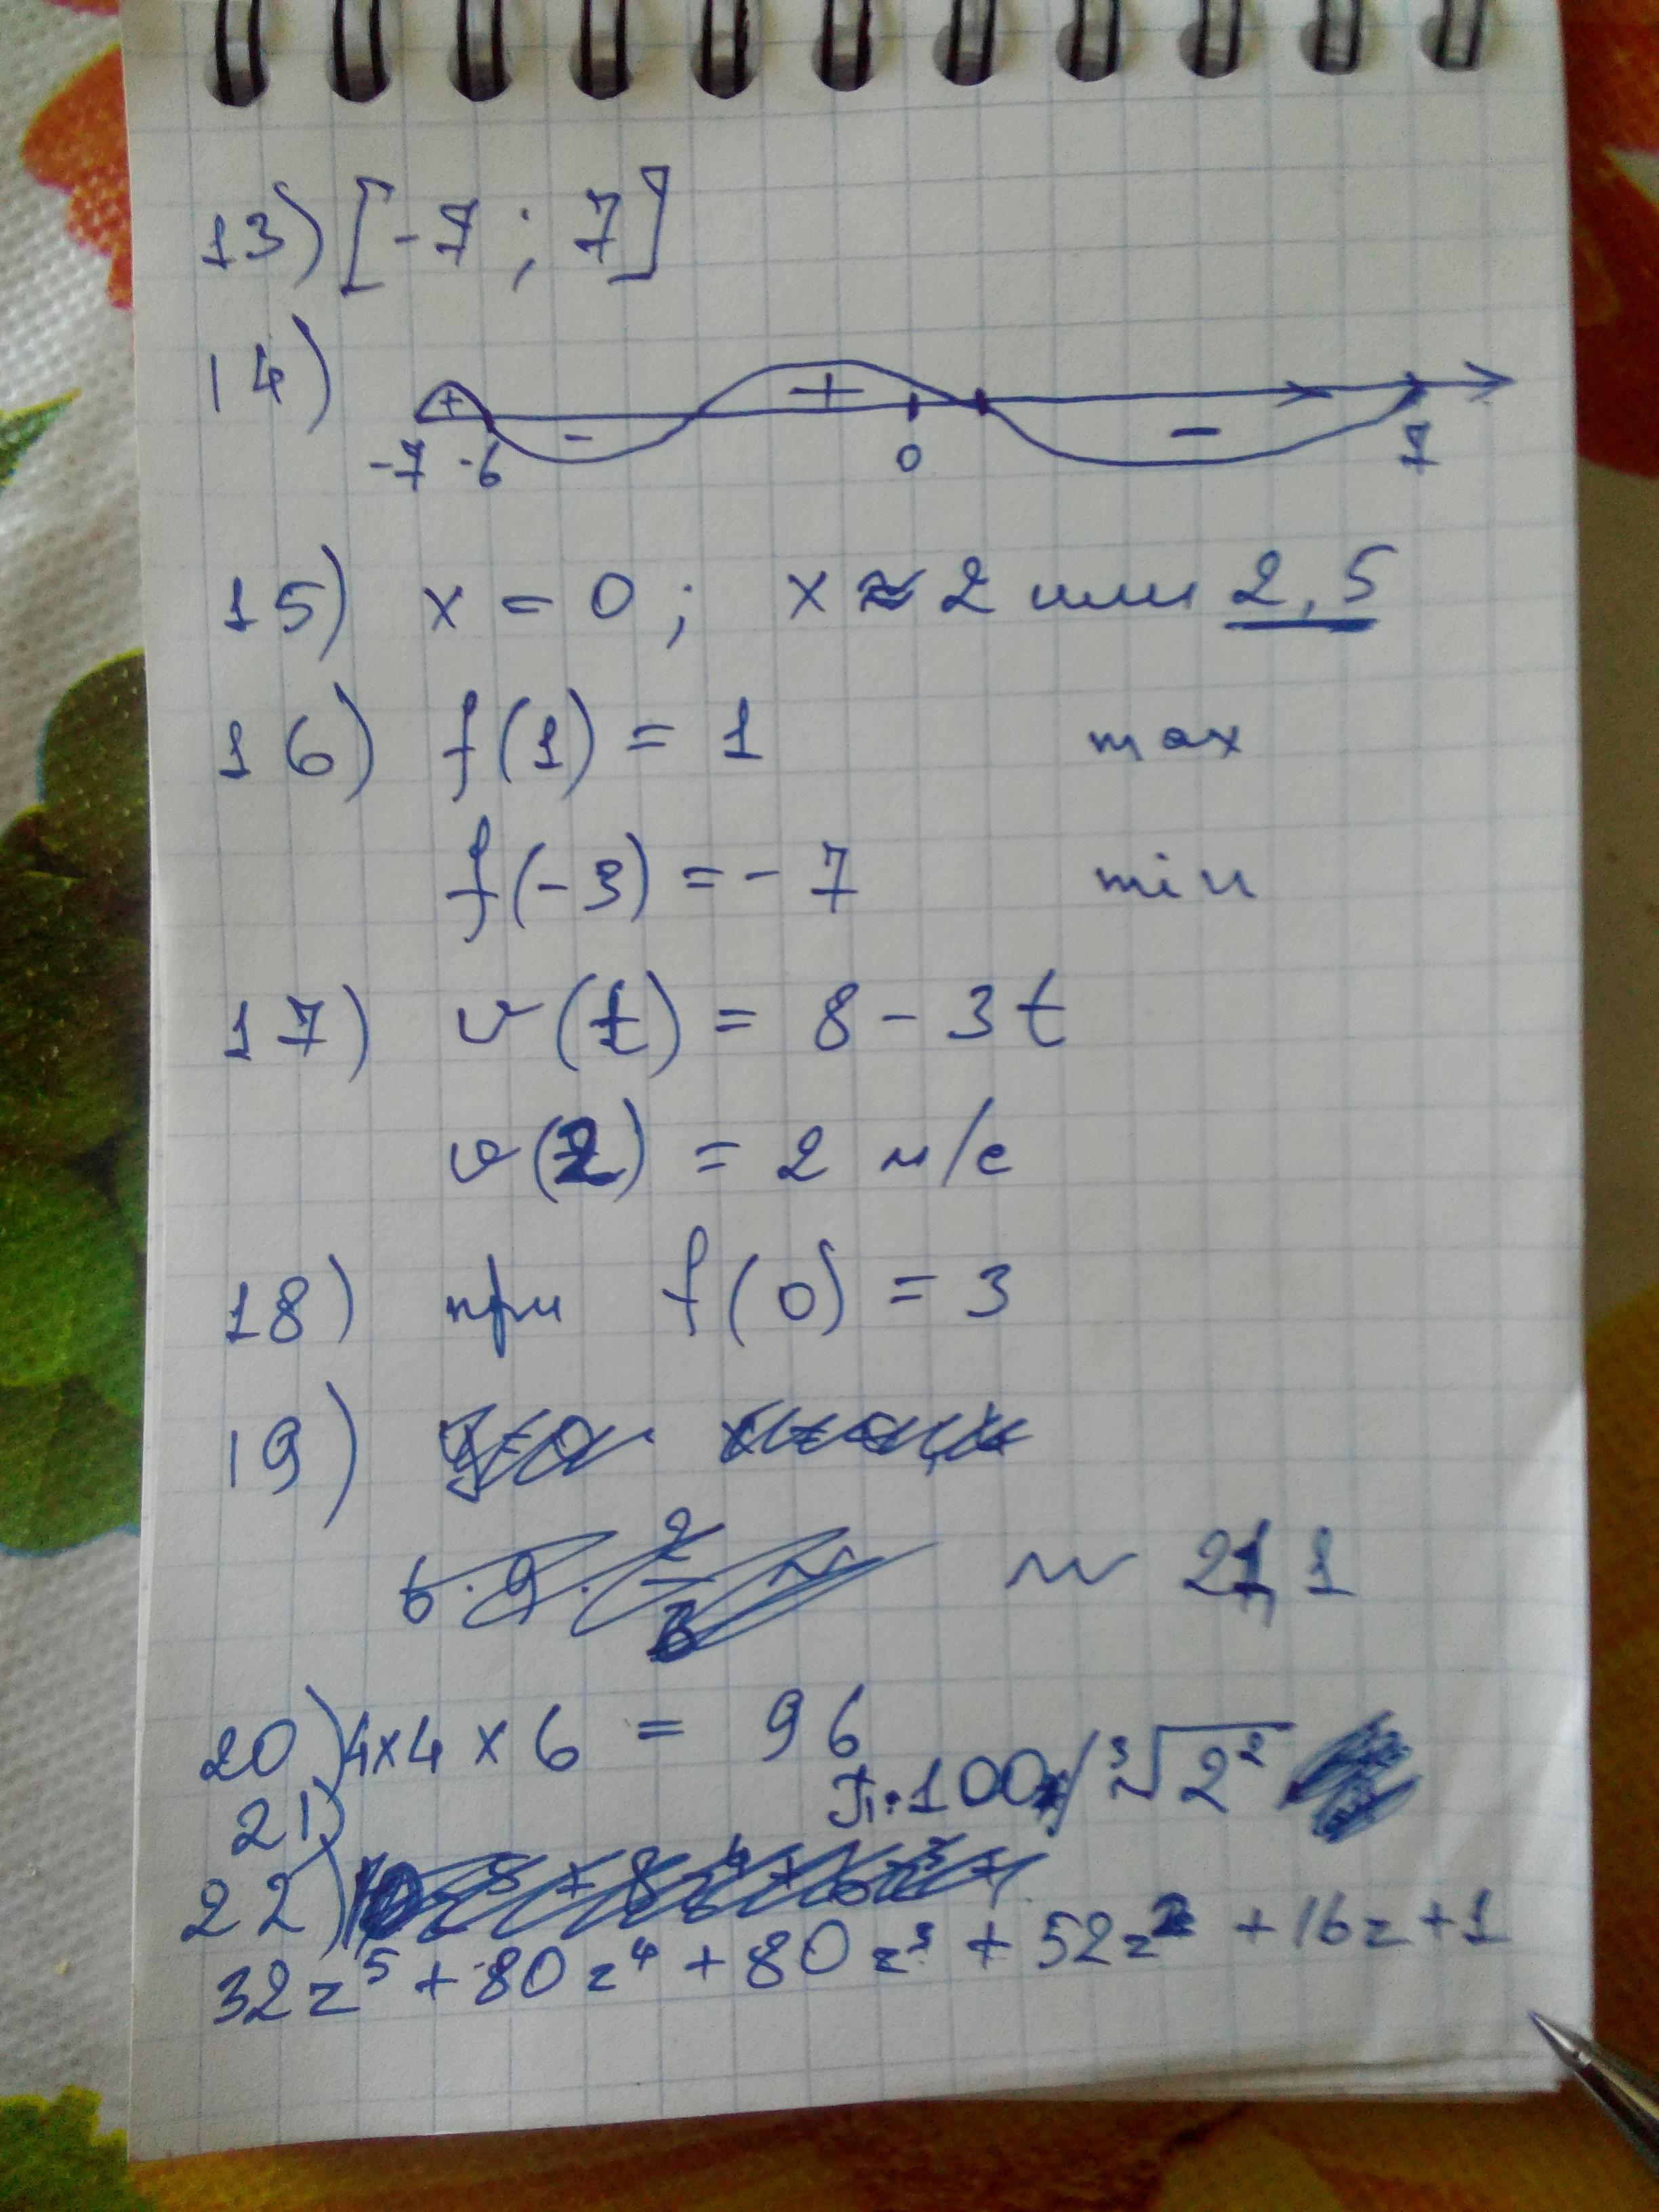 13) [-7 ; 7]
14) + - + -
-7 -6 0 7
15) x = 0 ; x ≈ 2 или 2,5
16) f(1) = 1 max
f(-3) = -7 min
17) v(t) = 8 - 3t
v(2) = 2 м/с
18) при f(0) = 3
19)
~ 21,1
20) 4x4 x 6 = 96
21) π·100 / ³√2²
22)
32z⁵ + 80z⁴ + 80z³ + 52z² + 16z + 1